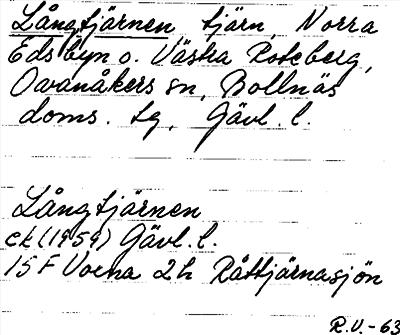 Långtjärnen tjärn, Norra
Edsbyn o. Västra Roteberg,
Ovanåkers sn, Bollnäs
doms. tg, Gävl. l.
Långtjärnen
ek (1959) Gävl. l.
15 F Voxna 2h Råttjärnasjön
R.V.-63